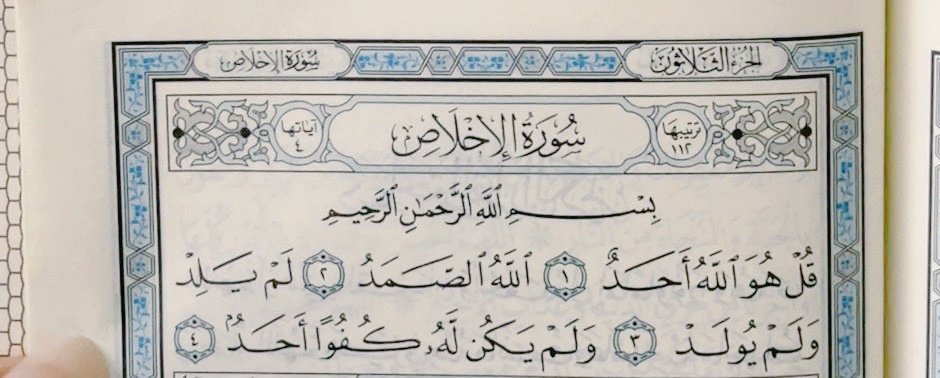 الجزء الثلاثون
سورة الإخلاص
ترتيبها ١١٢
سورة الإخلاص
آياتها ٤
بِسْمِ ٱللَّهِ ٱلرَّحْمَٰنِ ٱلرَّحِيمِ
قُلْ هُوَ ٱللَّهُ أَحَدٌ ١ ٱللَّهُ ٱلصَّمَدُ ٢ لَمْ يَلِدْ
وَلَمْ يُولَدْ ٣ وَلَمْ يَكُن لَّهُۥ كُفُوًا أَحَدٌۢ ٤